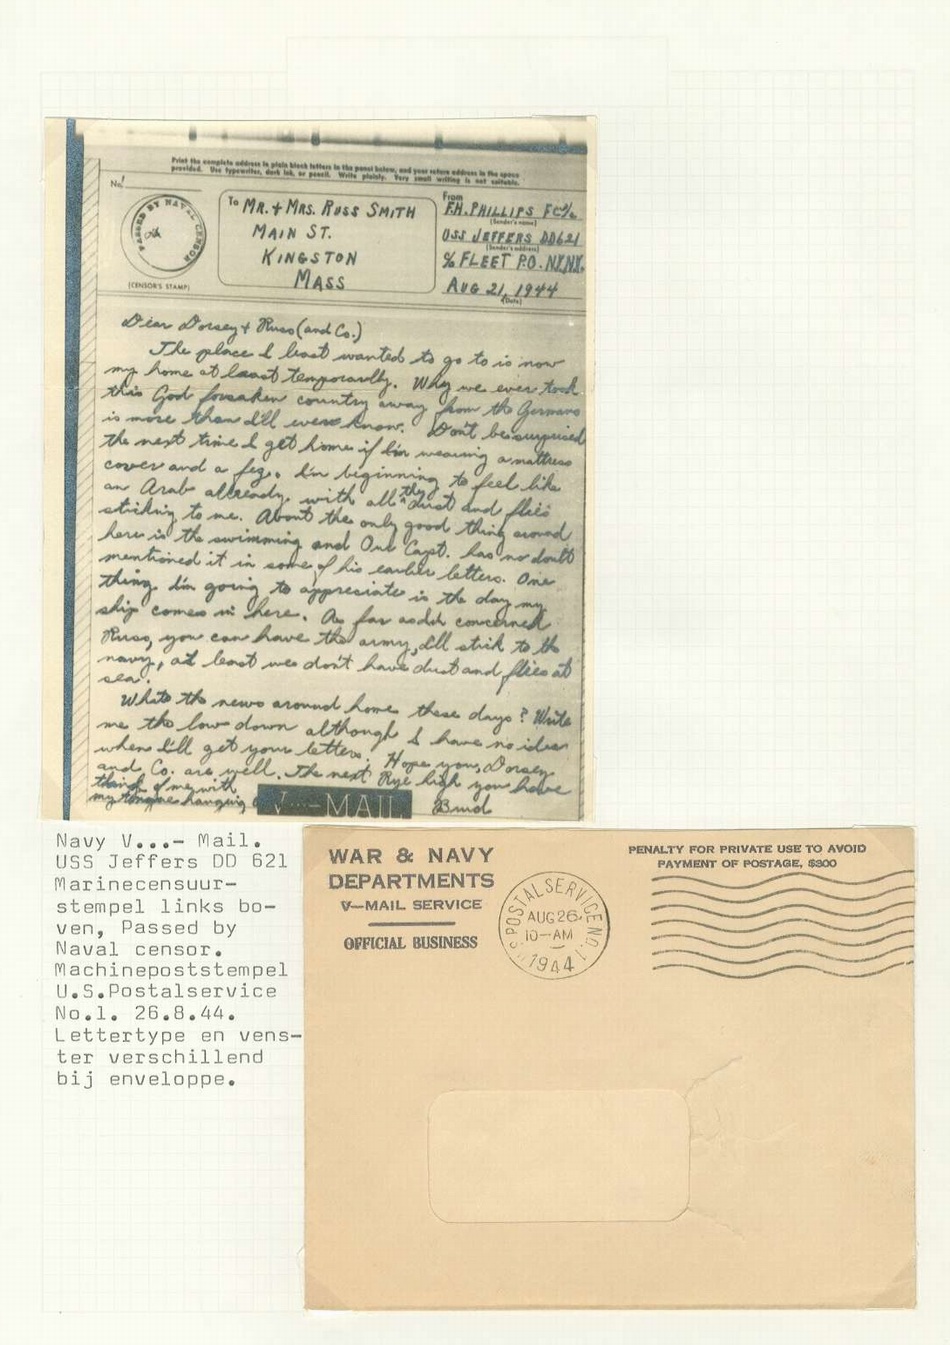 Print the complete address in plain block letters in the panel below, and your return address in the space
provided. Use typewriter, dark ink, or pencil. Write plainly. Very small writing is not suitable.
No.
PASSED BY NAVAL CENSOR
(CENSOR'S STAMP)
To MR. + MRS. RUSS SMITH
MAIN ST.
KINGSTON
MASS
From
F.H. PHILLIPS
(Sender's name)
USS JEFFERS DD621
(Sender's address)
% FLEET P.O. N.Y.N.Y.
AUG 21, 1944
(Date)
Dear Dorsey + Russ (and Co.)
The place I least wanted to go to is now
my home at least temporarily. Why we ever took
this God forsaken country away from the Germans
is more than I'll ever know. Don't be surprised
the next time I get home if I'm wearing a mattress
cover and a fez. I'm beginning to feel like
an Arab allready with all the dust and flies
sticking to me. About the only good thing around
here is the swimming and Our Capt. has no doubt
mentioned it in some of his earlier letters. One
thing I'm going to appreciate is the day my
ship comes in here. As far as I'm concerned
Russ, you can have the army, I'll stick to the
navy, at least we don't have dust and flies at
sea.
Whats the news around home these days? Write
me the low down although I have no idea
when I'll get your letters. Hope you, Dorsey
and Co. are well. The next Rye high you have
think of me with
my tongue hanging
V...-MAIL
Bud
Navy V...- Mail.
USS Jeffers DD 621
Marinecensuur-
stempel links bo-
ven, Passed by
Naval censor.
Machinepoststempel
U.S.Postalservice
No.1. 26.8.44.
Lettertype en vens-
ter verschillend
bij enveloppe.
WAR & NAVY
DEPARTMENTS
V-MAIL SERVICE
OFFICIAL BUSINESS
U.S. POSTAL SERVICE NO. 1
AUG 26
10-AM
1944
PENALTY FOR PRIVATE USE TO AVOID
PAYMENT OF POSTAGE, $300